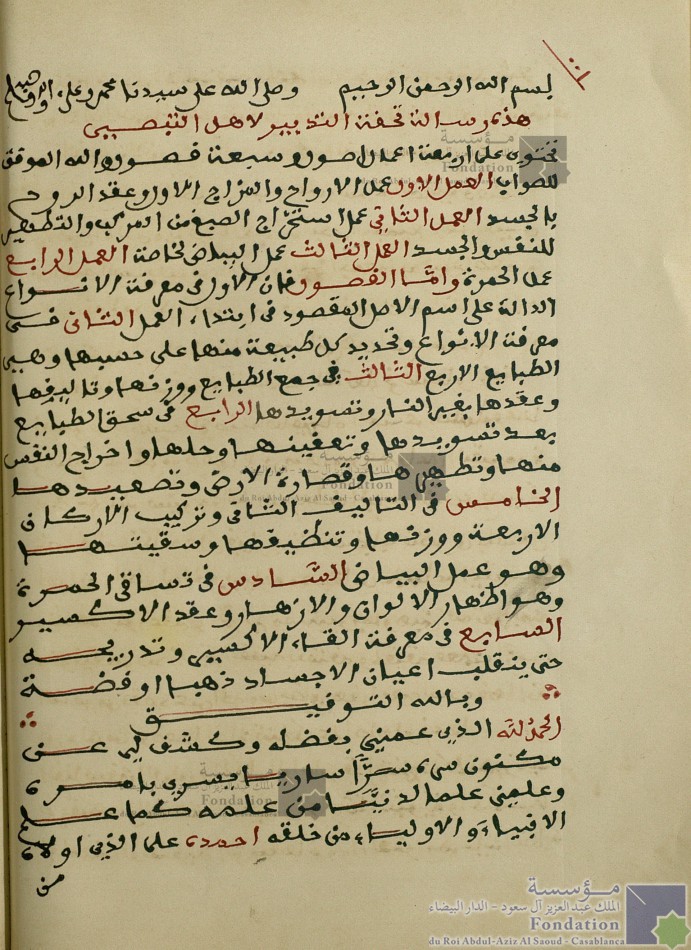 بسم الله الرحمن الرحيم وصلى الله على سيدنا محمد وعلى اله وصحبه
هذه رسالة تحفة التدبير لاهل التبصير
تحتوي على اربعة اعمال اصول وسبعة فصول والله الموفق
للصواب العمل الاول عمل الارواح والمزاج الاول وعقد الروح
بالجسد العمل الثاني عمل استخراج الصبغ من المركب والتطهير
للنفس والجسد العمل الثالث عمل البياض خاصة العمل الرابع
عمل الحمرة واما الفصول فان الاول في معرفة الانواع
الدالة على اسم الاصل المقصود في ابتداء العمل الثاني في
معرفة الانواع وتحديد كل طبيعة منها على حسبها وهي
الطبايع الاربع الثالث في جمع الطبايع ووزنها وتاليفها
وعقدها بغير النار وتسويدها الرابع في سحق الطبايع
بعد تسويدها وتعفينها وحلها واخراج النفس
منها وتطهيرها وقصارة الارض وتصعيدها
الخامس في التاليف الثاني وتركيب الاركان
الاربعة ووزنها وتنظيفها وسقيتها
وهو عمل البياض السادس في تساقي الحمرة
وهو اظهار الالوان والازهار وعقد الاكسير
السابع في معرفة القاء الاكسير وتدريجه
حتى ينقلب اعيان الاجساد ذهبا او فضة
وبالله التوفيق
الحمد لله الذي عمني بفضله وكشف لي عن
مكنون سره سرا ساريا يسري بامره
وعلمني علما لدنيا من علمه كما علم
الانبياء والاولياء من خلقه احمده على الذي اولاه
من
مؤسسة
الملك عبد العزيز آل سعود - الدار البيضاء
Fondation
du Roi Abdul-Aziz Al Saoud - Casablanca